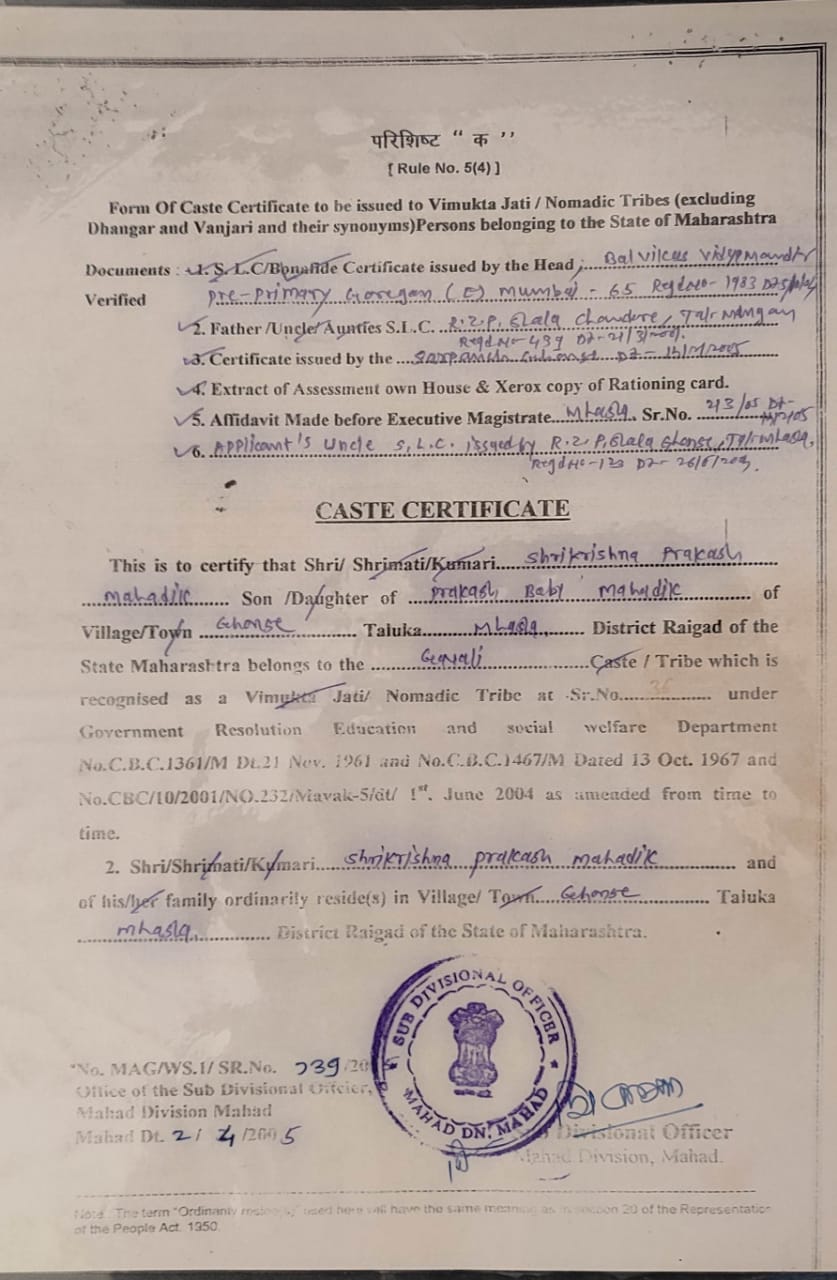 परिशिष्ट “ क ’’
[ Rule No. 5(4) ]
Form Of Caste Certificate to be issued to Vimukta Jati / Nomadic Tribes (excluding
Dhangar and Vanjari and their synonyms)Persons belonging to the State of Maharashtra
Documents : 1. S.L.C/Bonafide Certificate issued by the Head, Bal Vikas Vidyamandir
Verified Pre-Primary Goregaon (E) Mumbai - 65 Regd No- 1983
2. Father /Uncle/ Aunties S.L.C. R.Z.P.
Regd No- 439
3. Certificate issued by the
4. Extract of Assessment own House & Xerox copy of Rationing card.
5. Affidavit Made before Executive Magistrate Mhasla, Sr.No. 213/05 Dt-
6. Applicant's Uncle S.L.C. issued by R.Z.P.
Regd No-123
CASTE CERTIFICATE
This is to certify that Shri/ Shrimati/Kumari Shrikrishna Prakash
Mahadik Son /Daughter of Prakash Baby Mahadik of
Village/Town Ghonse Taluka Mhasla, District Raigad of the
State Maharashtra belongs to the Gavali Caste / Tribe which is
recognised as a Vimukta Jati/ Nomadic Tribe at Sr.No. 36 under
Government Resolution Education and social welfare Department
No.C.B.C.1361/M Dt.21 Nov. 1961 and No.C.B.C.1467/M Dated 13 Oct. 1967 and
No.CBC/10/2001/NO.232/Mavak-5/dt/ 1st. June 2004 as amended from time to
time.
2. Shri/Shrimati/Kumari Shrikrishna Prakash Mahadik and
of his/her family ordinarily reside(s) in Village/ Town Ghonse Taluka
Mhasla, District Raigad of the State of Maharashtra.
SUB DIVISIONAL OFFICER
MAHAD DN. MAHAD
No. MAG/WS.1/ SR.No. 739/20
Office of the Sub Divisional Offcier,
Mahad Division Mahad
Mahad Dt. 2/4/2005
Divisional Officer
Mahad Division, Mahad.
Note : The term "Ordinarily reside(s)" used here will have the same meaning as in section 20 of the Representation
of the People Act. 1950.